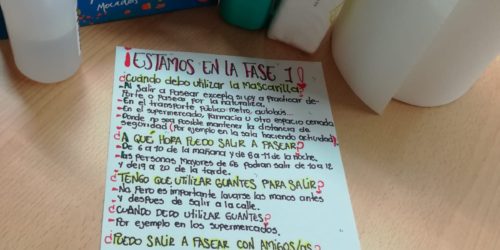 Mocados
¡ESTAMOS EN LA FASE 1!
¿Cuándo debo utilizar la Mascarilla?
-Al salir a Pasear excepto si voy a practicar de-
porte o Pasear por la naturaleza.
-En el transporte público metro, autobús...
-En el supermercado, farmacia u otro espacio cerrado
-Donde no sea posible mantener la distancia de
seguridad (Por ejemplo en la sala haciendo actividad).
¿A QUÉ HORA PUEDO SALIR A PASEAR?
-De 6 a 10 de la mañana y de 8 a 11 de la noche.
-las personas Mayores de 65 podrán salir de 10 a 12
y de 19 a 20 de la tarde.
¿TENGO QUE UTILIZAR GUANTES PARA SALIR?
-No, Pero es importante lavarse las manos antes
y despues de salir a la calle.
¿CUÁNDO DEBO UTILIZAR GUANTES?
-Por ejemplo en los supermercados.
¿PUEDO SALIR A PASEAR CON AMIGOS/AS?